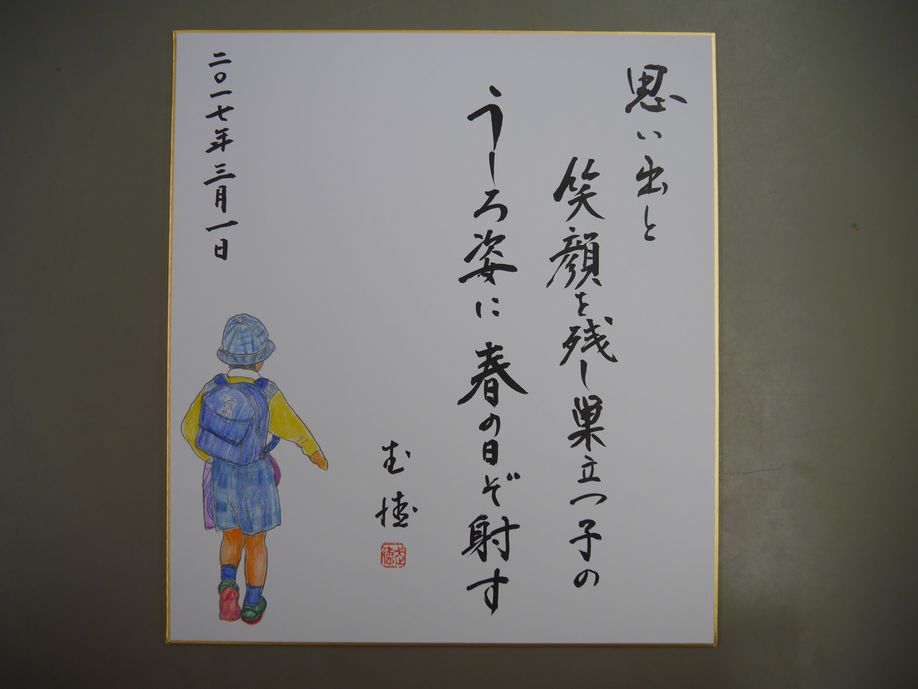 思い出と
笑顔を残し巣立つ子の
うしろ姿に春の日ぞ射す
二〇一七年三月一日